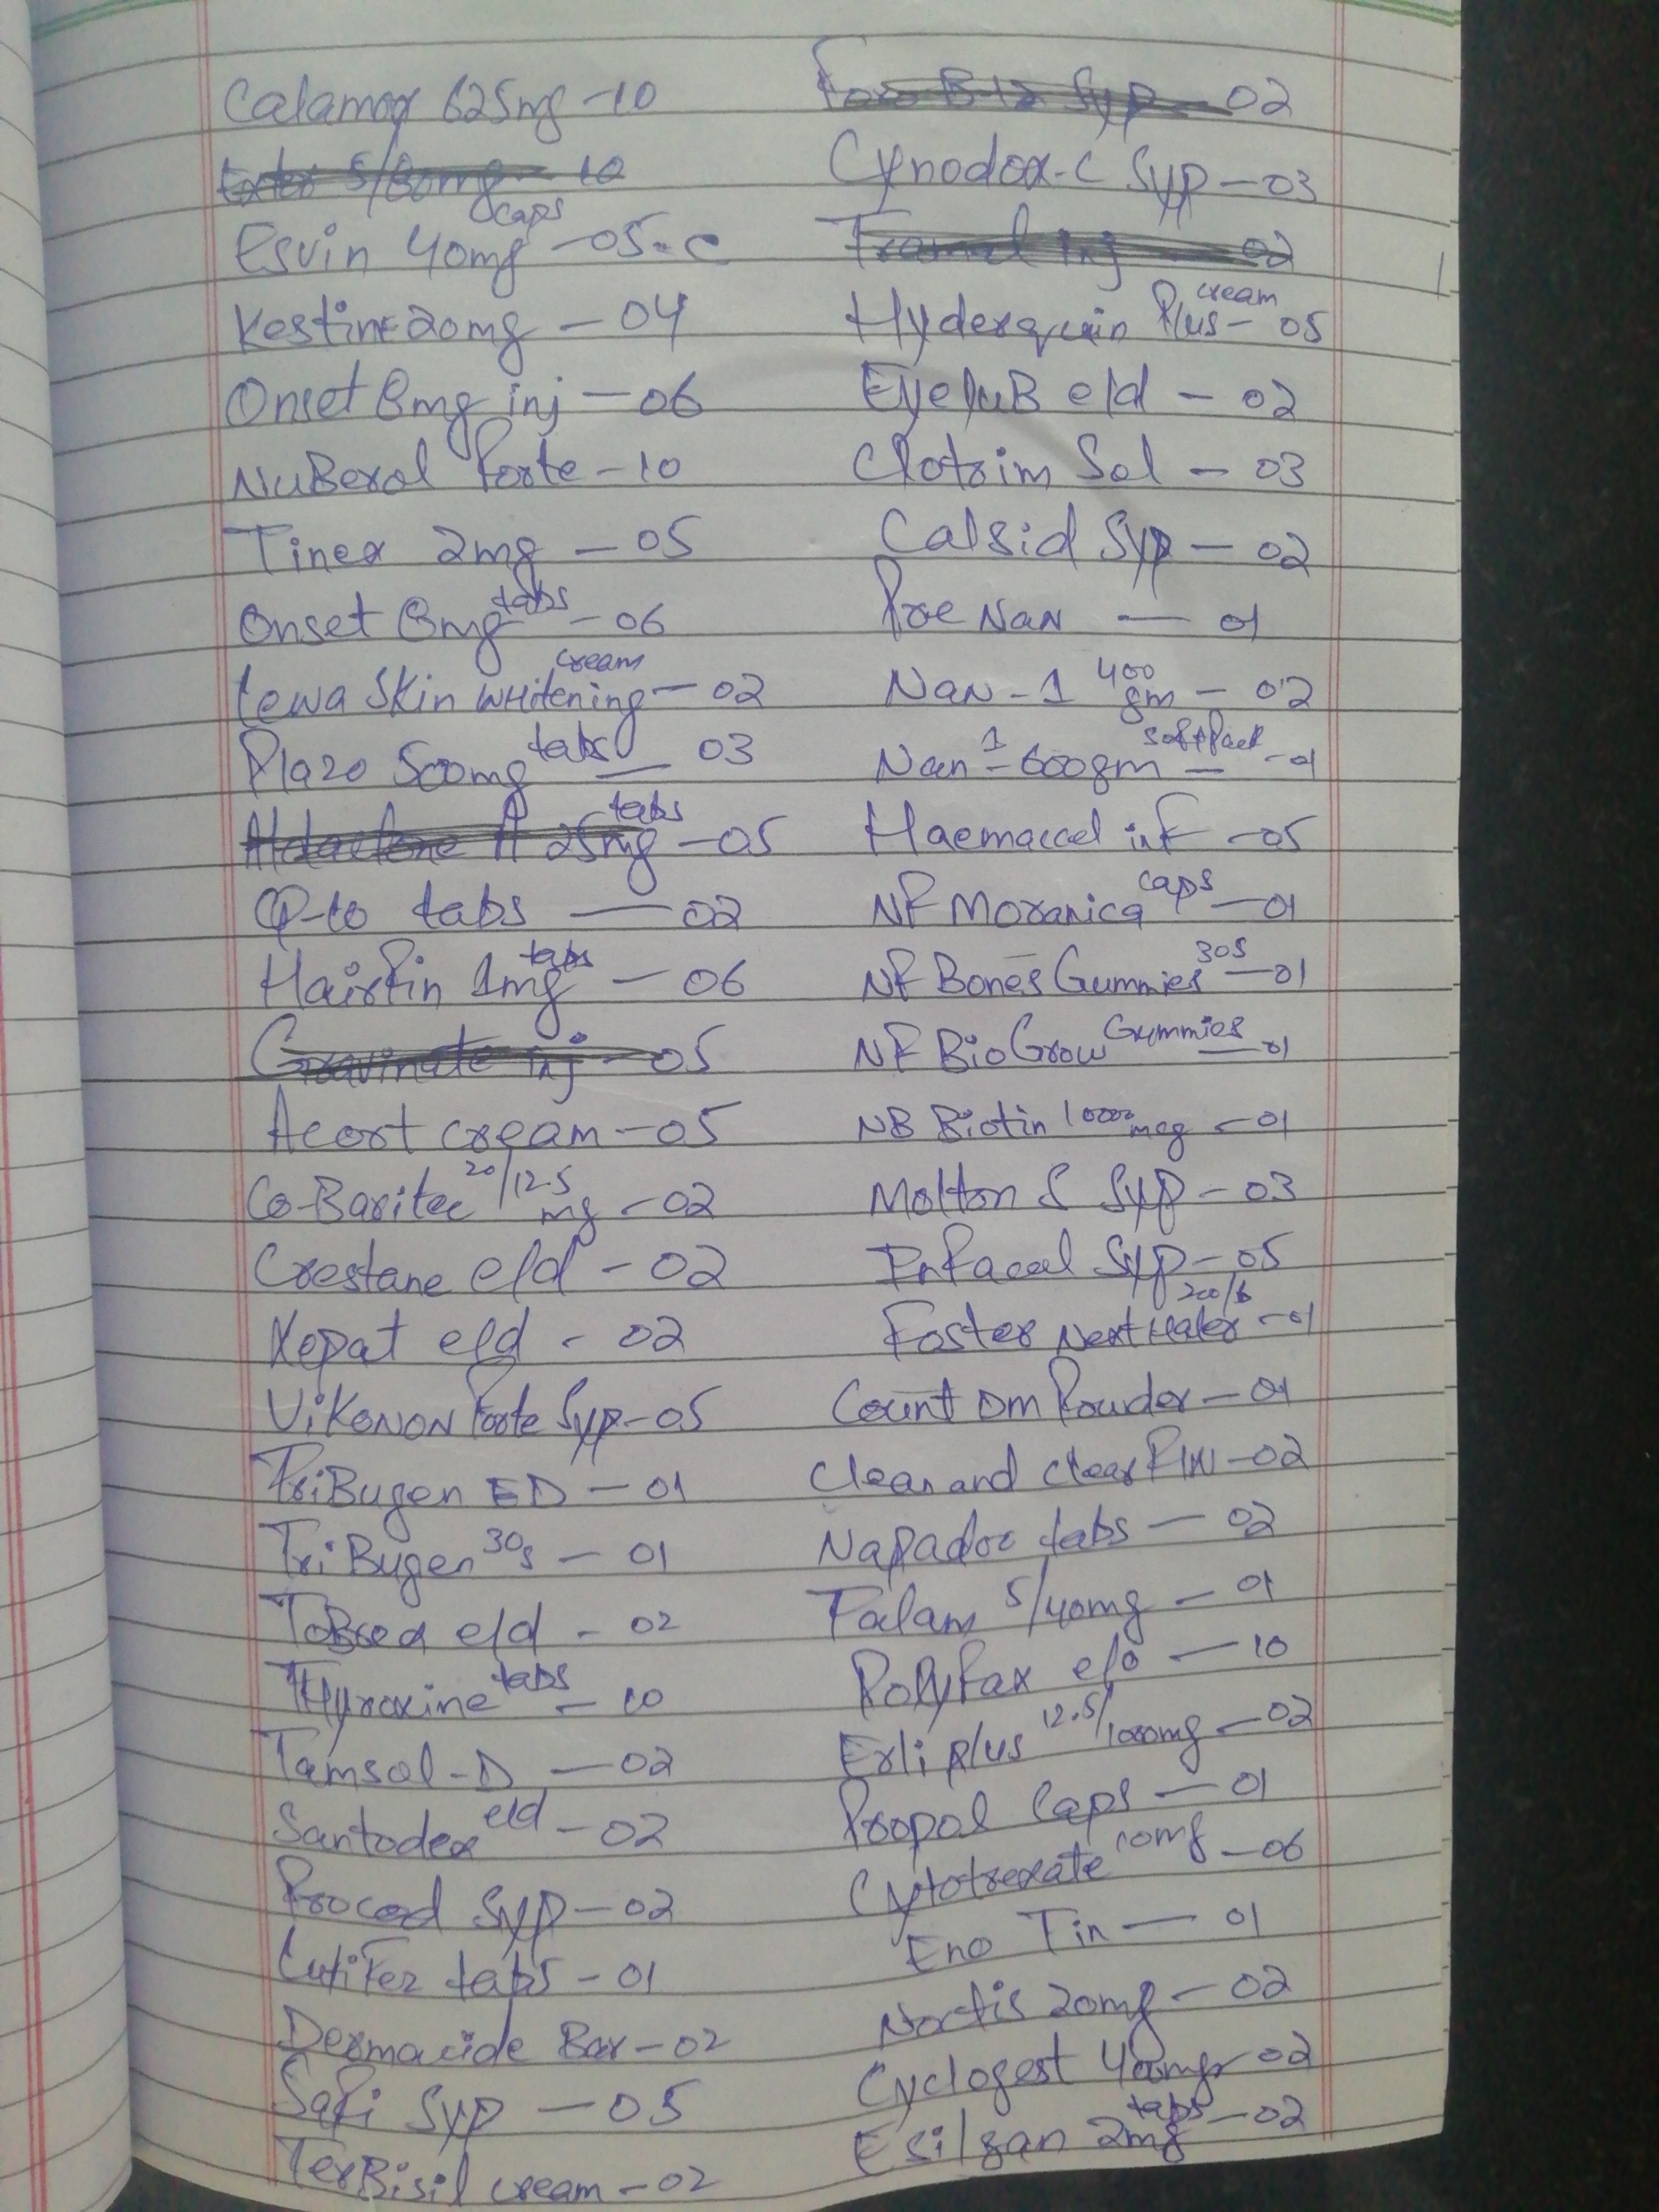 Calamox 625mg - 10
Exter 5/80mg - 10
Esvin 40mg caps - 05 - C
Kestine 20mg - 04
Onset 8mg inj - 06
NuBerol Forte - 10
Tinex 2mg - 05
Onset 8mg tabs - 06
Skin WHitening cream - 02
Plazo 500mg tabs - 03
Aldactone A 25mg tabs - 05
Q-10 tabs - 02
Hairfin 1mg tabs - 06
Gravinate inj - 05
Acort cream - 05
Co-Baritec 20/12.5 mg - 02
Crestane e/d - 02
Xepat e/d - 02
ViKONON Forte Syp - 05
TriBugen ED - 01
TriBugen 30s - 01
ToBrex e/d - 02
THyroxine tabs - 10
Tamsol-D - 02
Santodex e/d - 02
Procerd Syp - 02
CutiFez tabs - 01
Dermacide Bar - 02
Safi Syp - 05
TerBisil cream - 02
B-12 Syp - 02
Cynodox-C Syp - 03
Tramal inj - 02
Hyderquin Plus cream - 05
EyeluB e/d - 02
Clotrim Sol - 03
Calsid Syp - 02
Pre NaN - 01
NaN - 1 400 gm - 02
Nan 1 - 600gm Soft Pack - 01
Haemaccel inf - 05
NF Moranica caps - 01
NF Bones Gummies 30S - 01
NF BioGrow Gummies - 01
NB Biotin 10000 mcg - 01
Molton S Syp - 03
Infacal Syp - 05
Foster NextHaler 200/6 - 01
Count DM Powder - 01
Clean and Clear F/W - 02
Napadoc tabs - 02
Falam 5/40mg - 01
Polyfax e/o - 10
Erli plus 12.5/1000mg - 02
Propol Caps - 01
Cytotrexate 10mg - 06
Eno Tin - 01
Noctis 20mg - 02
Cyclogest 400mg - 02
Esilgan 2mg tabs - 02